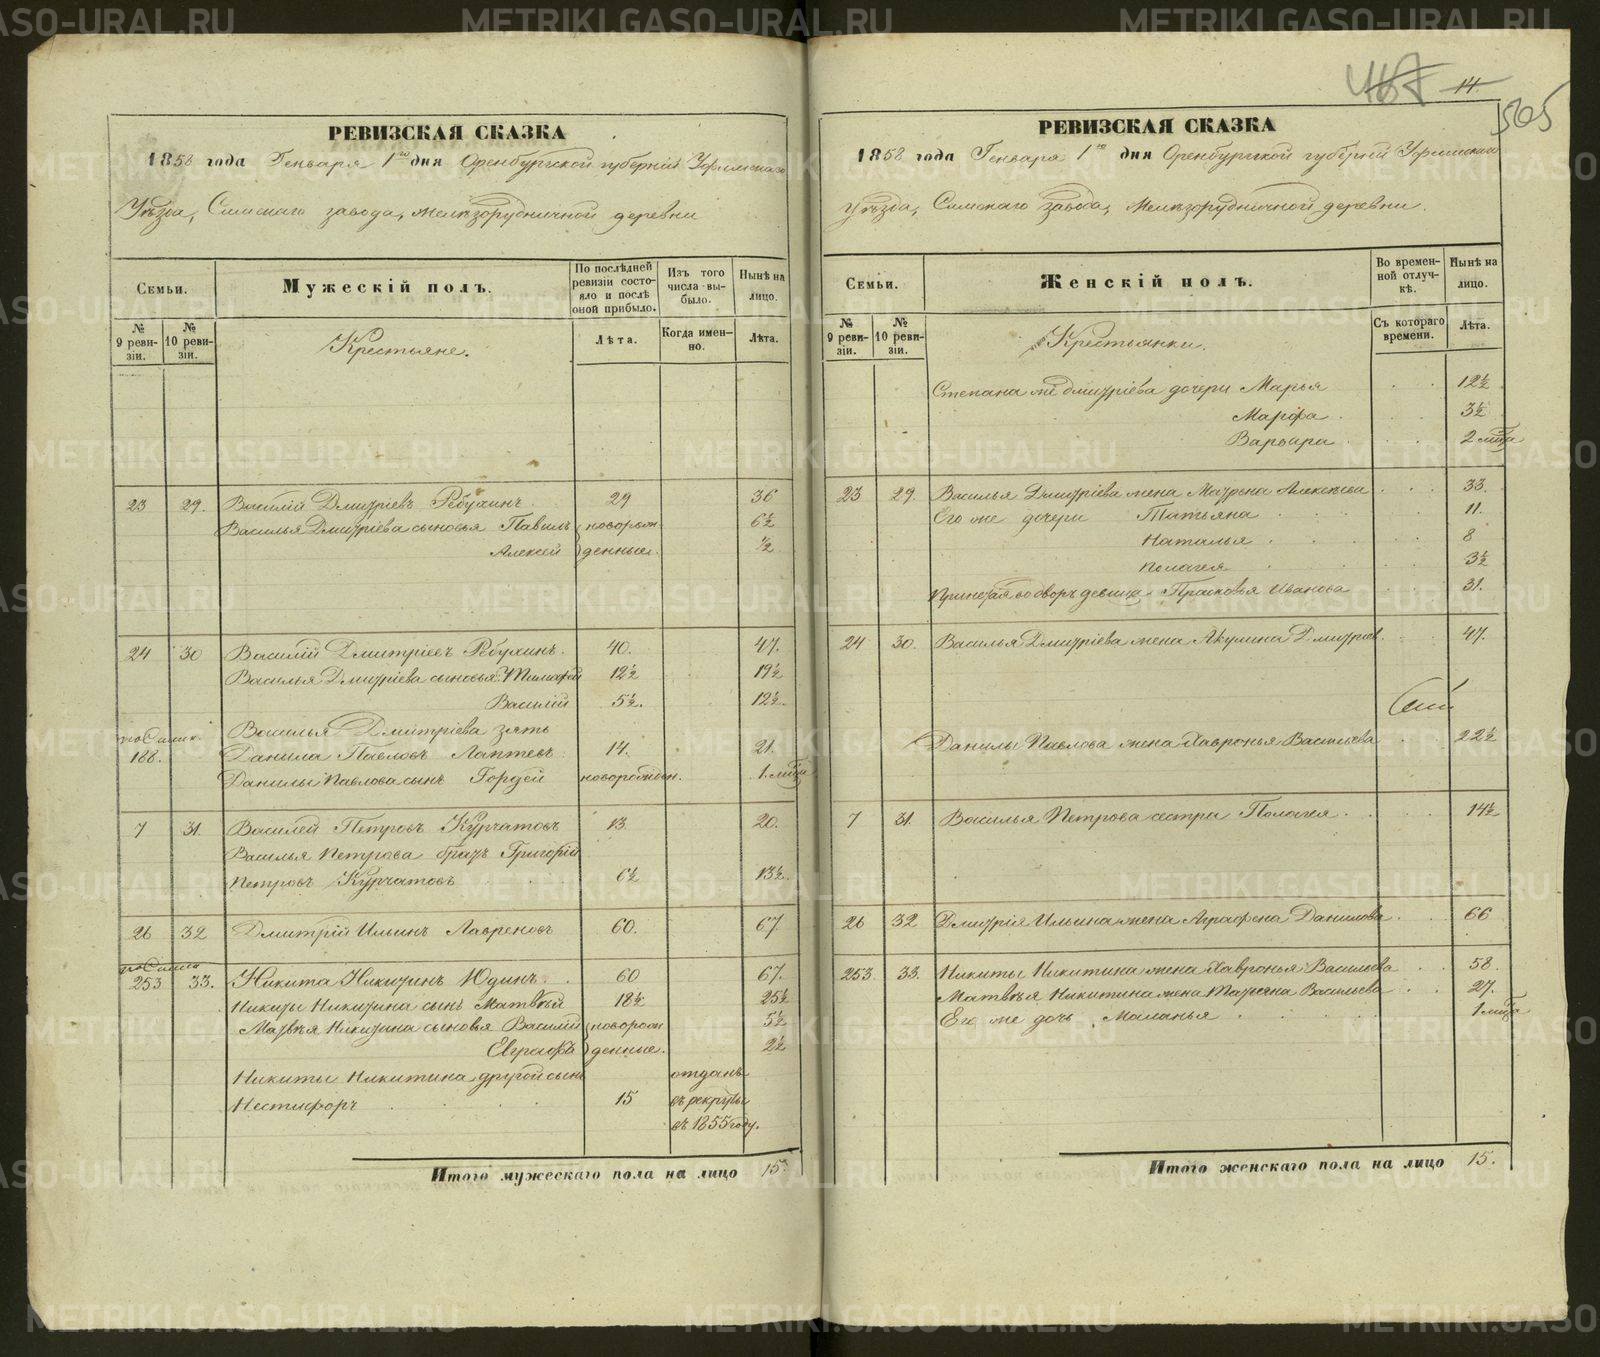 РЕВИЗСКАЯ СКАЗКА
1858 года Генваря 1го дня Оренбургской губерніи Уфимскаго
Уѣзда, Симскаго завода, Желѣзорудничной деревни
Семьи.
Мужескій полъ.
По послѣдней ревизіи состояло и послѣ оной прибыло.
Изъ того числа выбыло.
Нынѣ на лицо.
№ 9 ревизіи.
№ 10 ревизіи.
Крестьяне.
Лѣта.
Когда именно.
Лѣта.
23 29. Василій Дмитріевъ Рѣбухинъ 29 36
Василья Дмитріева сыновья Павилъ новорож- 6½
Алексей денные. ½
24 30 Василій Дмитріевъ Рѣбухинъ. 40. 47.
Василья Дмитріева сыновья: Тимофей 12½ 19½
Василій 5½. 12½.
по Симск. Василья Дмитріева зять
188. Данила Павловъ Лаптевъ 14. 21.
Данилы Павлова сынъ Гордей новорожден. 1.
7 31. Василей Петровъ Курчатовъ 13. 20.
Василья Петрова братъ Григорій
Петровъ Курчатовъ 6½ 13½.
26 32 Дмитрій Ильинъ Лавреновъ 60. 67
253 33. Никита Никитинъ Юдинъ. 60 67.
Никиты Никитина сынъ Матвѣй 18½ 25½
Матвѣя Никитина сыновья Василій новорож 5½
Евграфъ денные. 2½
Никиты Никитина другой сынъ отданъ
Нестифоръ 15 въ рекруты
въ 1855 году.
Итого мужескаго пола на лицо 15.
467 14
505
РЕВИЗСКАЯ СКАЗКА
1858 года Генваря 1го дня Оренбургской губерніи Уфимскаго
уѣзда, Симскаго завода, Желѣзорудничной деревни.
Семьи.
Женскій полъ.
Во временной отлучкѣ.
Нынѣ на лицо.
№ 9 ревизіи.
№ 10 ревизіи.
Крестьянки.
Съ котораго времени.
Лѣта.
Степана же Дмитріева дочери Марья 12½
Марфа 3½
Варвара 2
23 29. Василья Дмитріева жена Матрена Алексѣева 33.
Его же дочери Татьяна 11.
Наталья 8
Полагея 3½
во дворъ девица Прасковья Иванова 31.
24 30. Василья Дмитріева жена Акулина Дмитріев. 47.
Данилы Павлова жена Хавронья Васильева 22½
7 31. Василья Петрова сестра Полагея. 14½
26 32 Дмитрія Ильина жена Аграфена Данилова 66
253. 33. Никиты Никитина жена Хавронья Васильева 58.
Матвѣя Никитина жена Татіяна Васильева 27.
Его же дочь Маланья 1
Итого женскаго пола на лицо 15.
METRIKI.GASO-URAL.RU